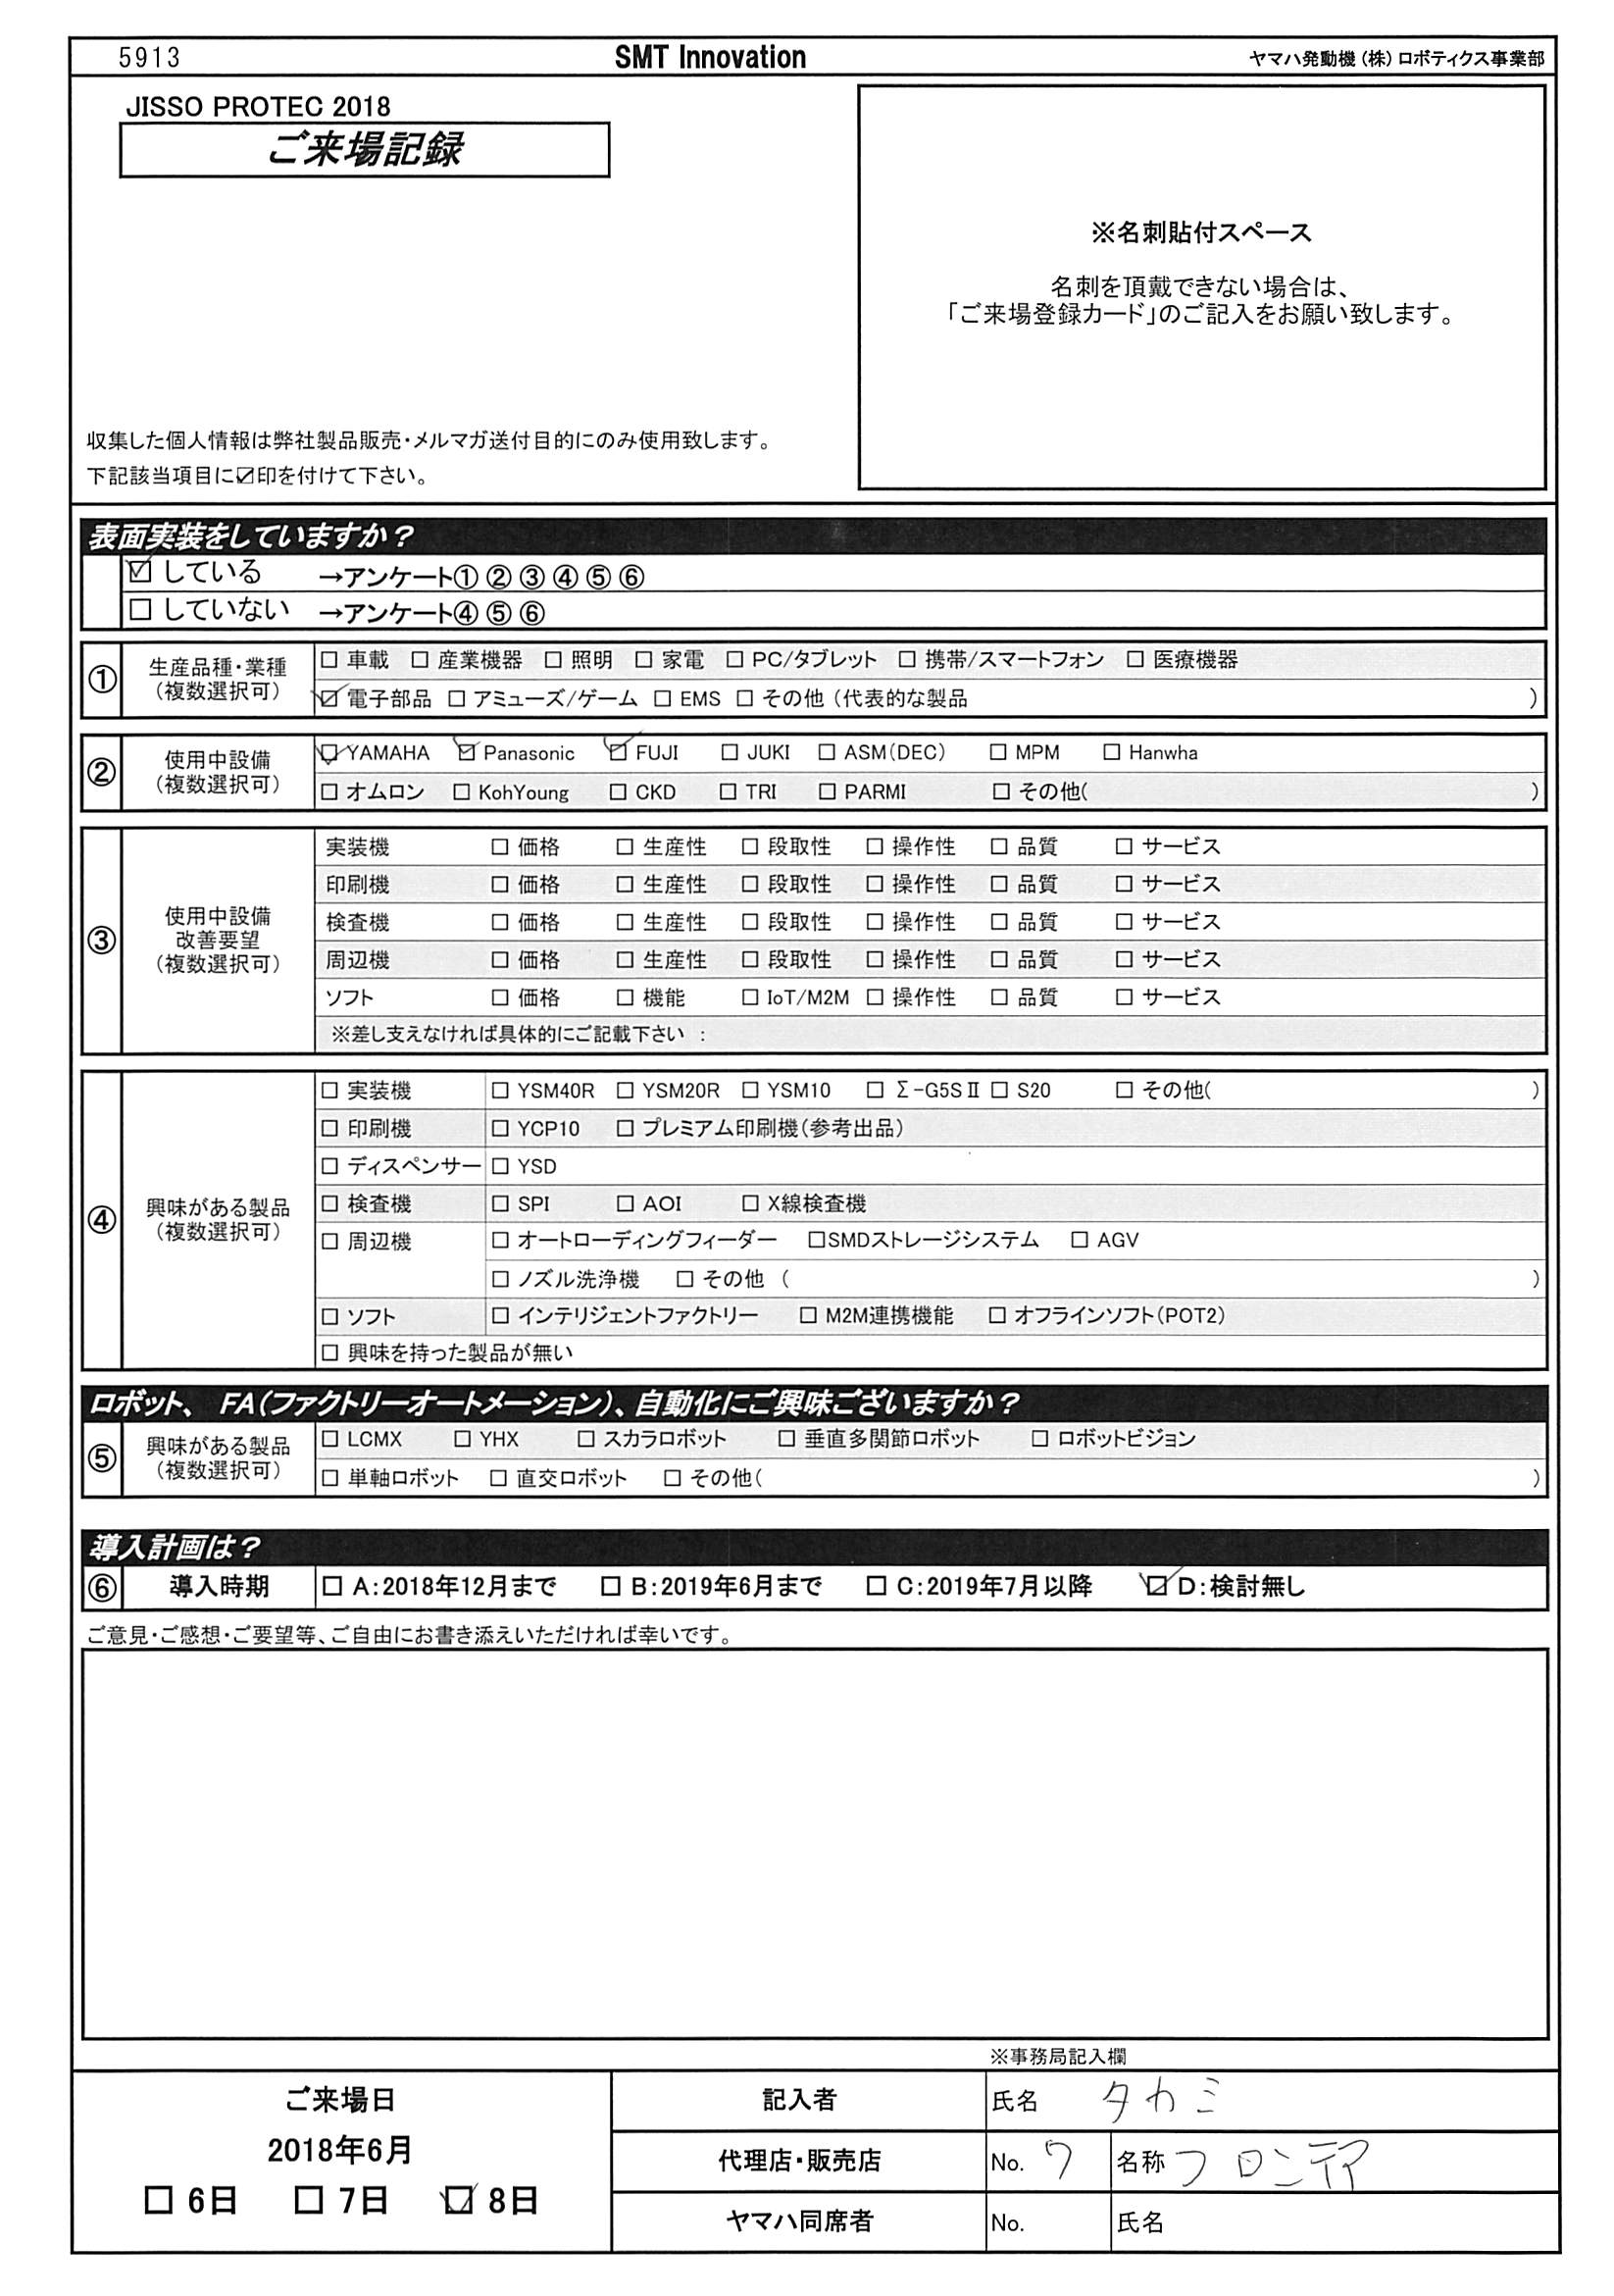 5913 SMT Innovation ヤマハ発動機（株）ロボティクス事業部
JISSO PROTEC 2018
ご来場記録
※名刺貼付スペース
名刺を頂戴できない場合は、
「ご来場登録カード」のご記入をお願い致します。
収集した個人情報は弊社製品販売・メルマガ送付目的にのみ使用致します。
下記該当項目に☑印を付けて下さい。
表面実装をしていますか？
☑ している →アンケート① ② ③ ④ ⑤ ⑥
□ していない →アンケート④ ⑤ ⑥
① 生産品種・業種（複数選択可）
□ 車載 □ 産業機器 □ 照明 □ 家電 □ PC/タブレット □ 携帯/スマートフォン □ 医療機器
☑ 電子部品 □ アミューズ/ゲーム □ EMS □ その他（代表的な製品 ）
② 使用中設備（複数選択可）
☑ YAMAHA ☑ Panasonic ☑ FUJI □ JUKI □ ASM(DEC) □ MPM □ Hanwha
□ オムロン □ KohYoung □ CKD □ TRI □ PARMI □ その他( )
③ 使用中設備改善要望（複数選択可）
実装機 □ 価格 □ 生産性 □ 段取性 □ 操作性 □ 品質 □ サービス
印刷機 □ 価格 □ 生産性 □ 段取性 □ 操作性 □ 品質 □ サービス
検査機 □ 価格 □ 生産性 □ 段取性 □ 操作性 □ 品質 □ サービス
周辺機 □ 価格 □ 生産性 □ 段取性 □ 操作性 □ 品質 □ サービス
ソフト □ 価格 □ 機能 □ IoT/M2M □ 操作性 □ 品質 □ サービス
※差し支えなければ具体的にご記載下さい ：
④ 興味がある製品（複数選択可）
□ 実装機 □ YSM40R □ YSM20R □ YSM10 □ Σ-G5SⅡ □ S20 □ その他( )
□ 印刷機 □ YCP10 □ プレミアム印刷機(参考出品)
□ ディスペンサー □ YSD
□ 検査機 □ SPI □ AOI □ X線検査機
□ 周辺機 □ オートローディングフィーダー □SMDストレージシステム □ AGV
□ ノズル洗浄機 □ その他 ( )
□ ソフト □ インテリジェントファクトリー □ M2M連携機能 □ オフラインソフト(POT2)
□ 興味を持った製品が無い
ロボット、 FA(ファクトリーオートメーション)、自動化にご興味ございますか？
⑤ 興味がある製品（複数選択可）
□ LCMX □ YHX □ スカラロボット □ 垂直多関節ロボット □ ロボットビジョン
□ 単軸ロボット □ 直交ロボット □ その他( )
導入計画は？
⑥ 導入時期 □ A:2018年12月まで □ B:2019年6月まで □ C:2019年7月以降 ☑ D:検討無し
ご意見・ご感想・ご要望等、ご自由にお書き添えいただければ幸いです。
※事務局記入欄
ご来場日
2018年6月
□ 6日 □ 7日 ☑ 8日
記入者 氏名 タカミ
代理店・販売店 No. 7 名称 フロンティア
ヤマハ同席者 No. 氏名